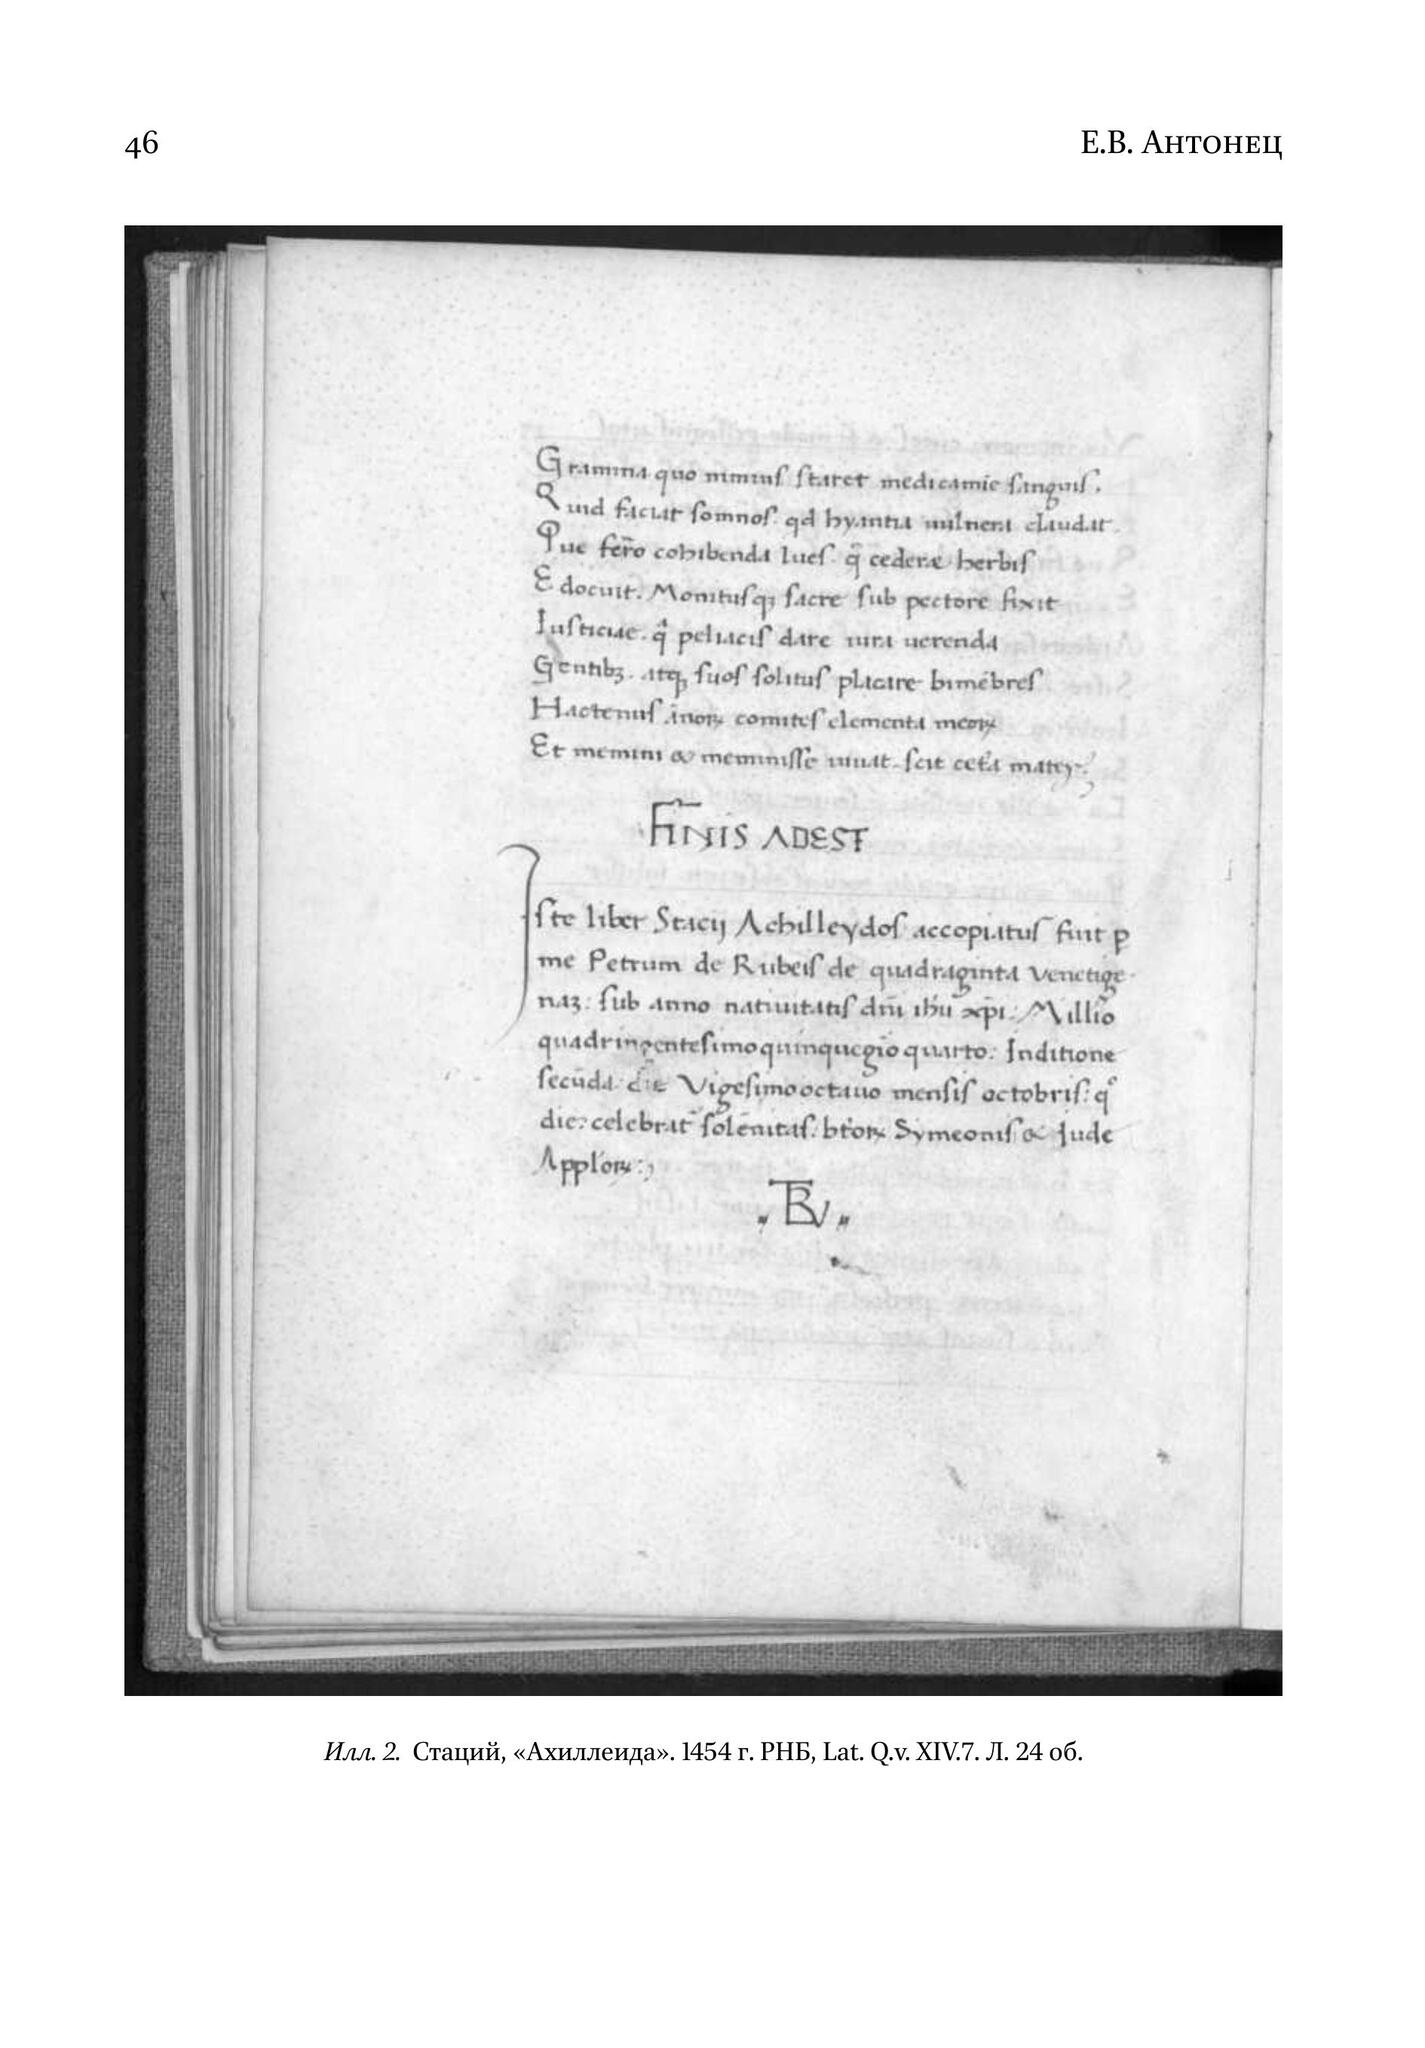 46
Е.В. Антонец
Gramina quo nimius staret medicamīe sanguis.
Quid faciat somnos. qd hyantia uulnera claudat.
Que ferro cohibenda lues. q̄ cederæ herbis
Edocuit. Monitusq; sacre sub pectore fixit
Iusticiae. q̄ peliacis dare iura uerenda
Gentibꝫ. atqꝫ suos solitus placare bimēbres
Hactenus ānoꝝ comites elementa meoꝝ
Et memini & meminisse iuuat. scit cetͣa mater.
FINIS ADEST
Iste liber Stacij Achilleydos accopiatus fuit ꝑ
me Petrum de Rubeis de quadraginta Venetige
naꝫ: sub anno natiuitatis dn̄i ihū xp̄i: Millīo
quadringentesimoquinquegīo quarto: Inditione
secūda: die Vigesimooctauo mensis octobris: qͦ
die: celebrat̄ solēnitas: btōꝝ Symeonis & Jude
Applōꝝ:
Илл. 2. Стаций, «Ахиллеида». 1454 г. РНБ, Lat. Q.v. XIV.7. Л. 24 об.